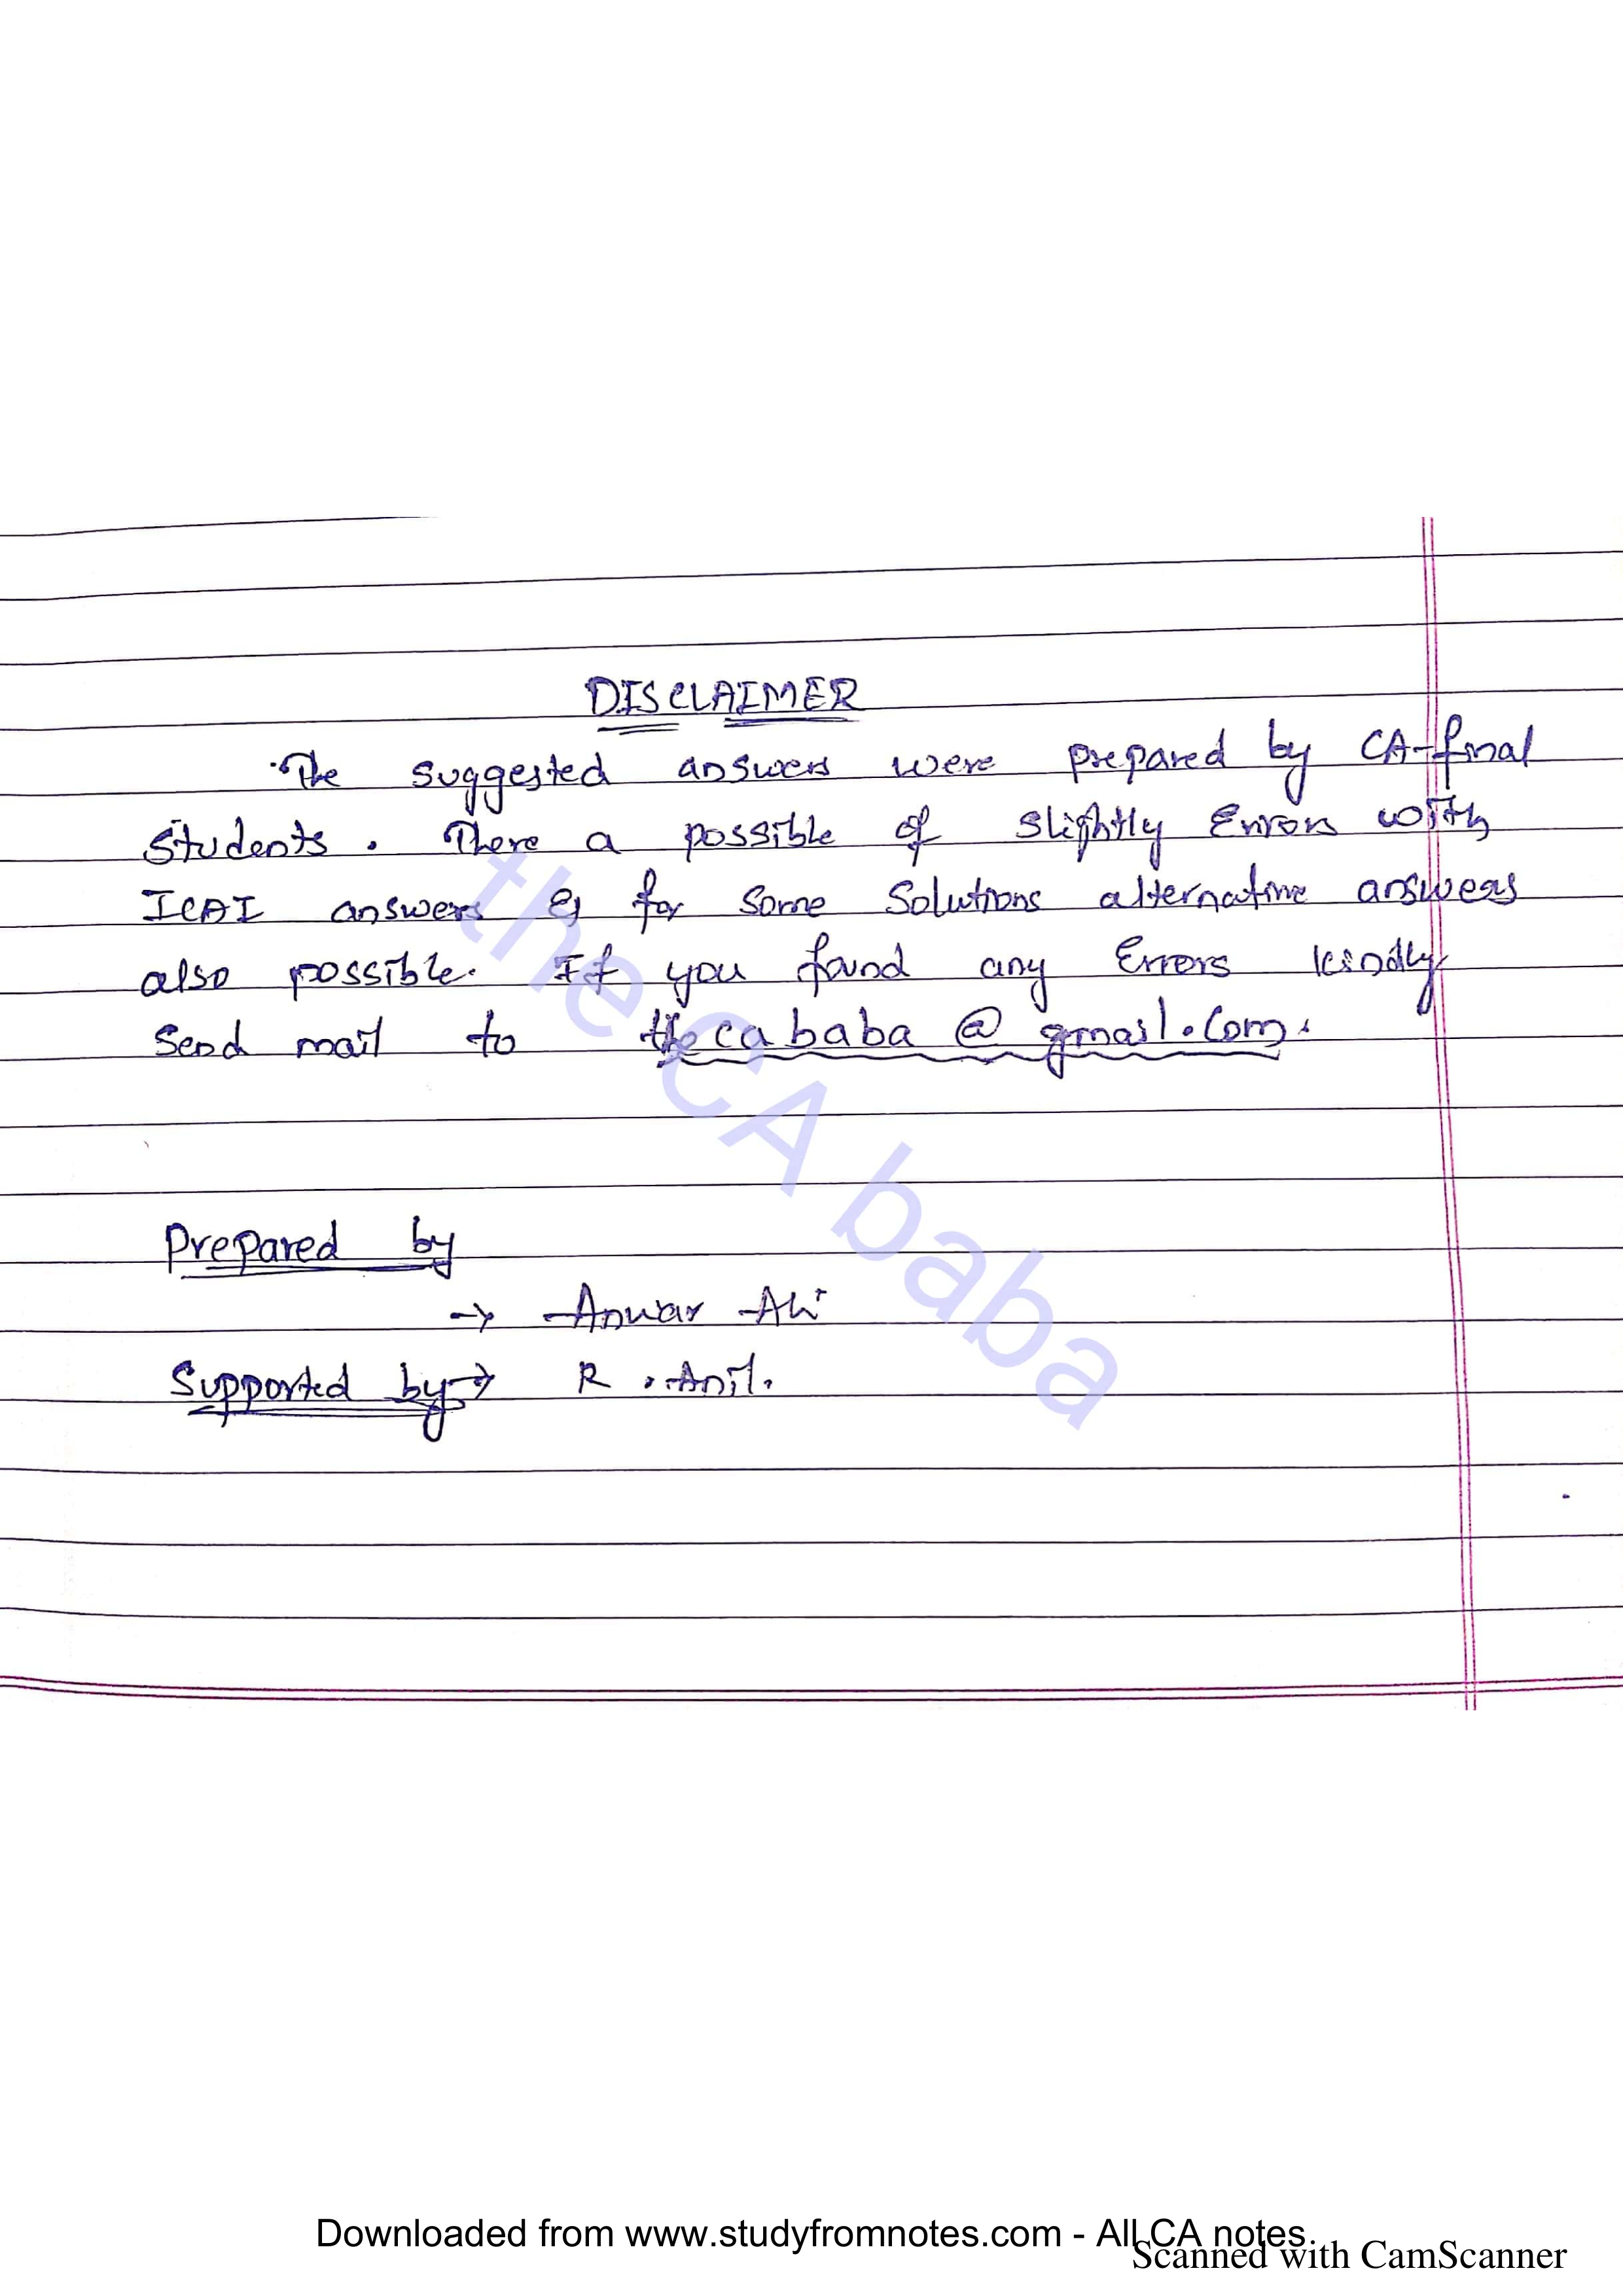 DISCLAIMER
The suggested answers were prepared by CA-final
Students. There a possible of slightly Errors with
ICAI answers & for Some Solutions alternative answers
also possible. If you found any Errors kindly
Send mail to thecababa@gmail.com.
the CA baba
Prepared by
→ Anwar Ali
Supported by → R. Anil.
Downloaded from www.studyfromnotes.com - All CA notes
Scanned with CamScanner